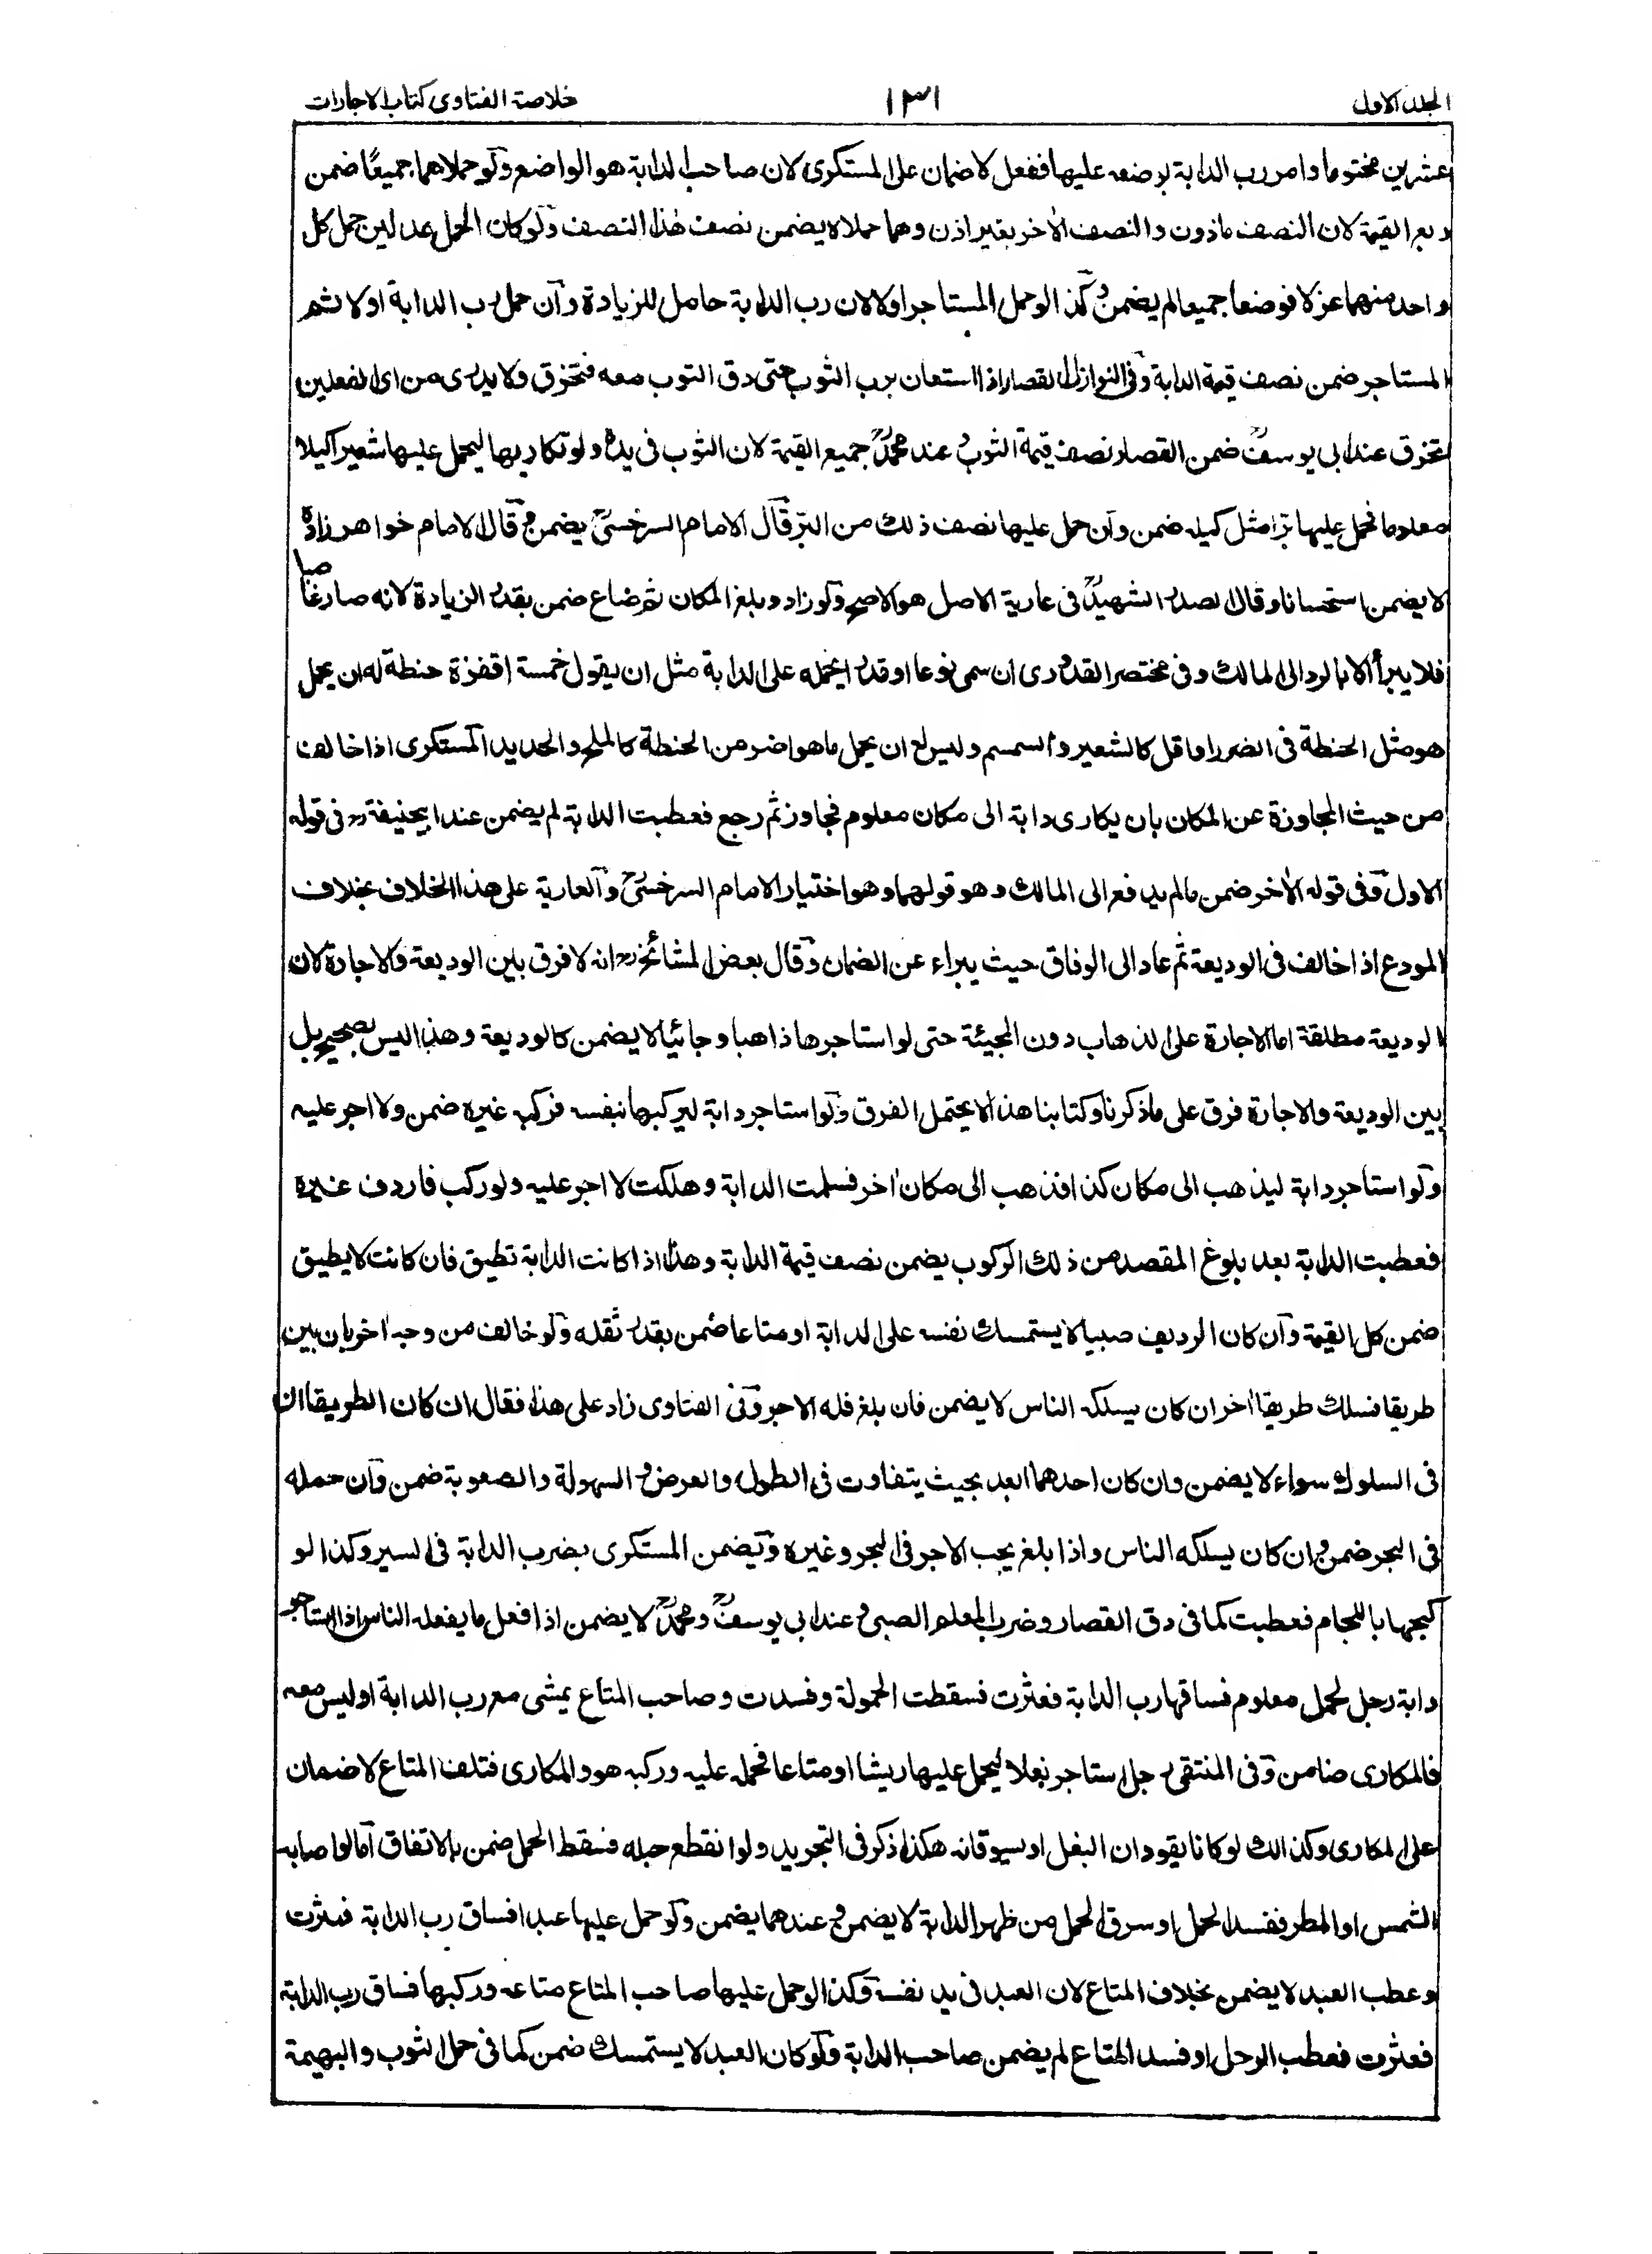 المجلد الاول ١٣١ خلاصة الفتاوى كتاب الاجارات
عشرين مختوما وامر رب الدابة بوضعه عليها ففعل لا ضمان على المستكرى لان صاحب الدابة هو الواضع ولو حملاهما جميعًا ضمن
ربع القيمة لان النصف ماذون والنصف الاٰخر بغير اذن وهما حملاه يضمن نصف هٰذا النصف ولو كان الحمل عدلين حمل كل
واحد منهما عزلا فوضعا جميعا لم يضمن وكذا لو حمل المستاجر اولا لان رب الدابة حامل للزيادة وان حمل رب الدابة اولا ثم
المستاجر ضمن نصف قيمة الدابة وفى النوازل القصار اذا استعان برب الثوب حتى دق الثوب معه فتخزق ولا يدرى من اى الفعلين
تخزق عند ابى يوسفؒ ضمن القصار نصف قيمة الثوب وعند محمدؒ جميع القيمة لان الثوب فى يده ولو تكاريها ليحمل عليها شعيرا كيلا
معلوما فحمل عليها برا مثل كيله ضمن وان حمل عليها نصف ذلك من البر قال الامام السرخسىؒ يضمن وقال الامام خواهر زادهؒ
لا يضمن استحسانا وقال الصدر الشهيدؒ فى عارية الاصل هو الاصح ولو زاد وبلغ المكان ثم ضاع ضمن بقدر الزيادة لانه صار غاصبا
فلا يبرأ الا بالرد الى المالك وفى مختصر القدورى ان سمى نوعا او قدرا يحمله على الدابة مثل ان يقول خمسة اقفزة حنطة له ان يحمل
هو مثل الحنطة فى الضرر او اقل كالشعير والسمسم وليس له ان يحمل ما هو اضر من الحنطة كالملح والحديد المستكرى اذا خالف
من حيث المجاوزة عن المكان بان يكارى دابة الى مكان معلوم فجاوز ثم رجع فعطبت الدابة لم يضمن عند ابيحنيفةؒ فى قوله
الاول وفى قوله الاٰخر ضمن مالم يدفع الى المالك وهو قولهما وهو اختيار الامام السرخسىؒ والعارية على هذا الخلاف بخلاف
المودع اذا خالف فى الوديعة ثم عاد الى الوفاق حيث يبراء عن الضمان وقال بعض المشائخؒ انه لا فرق بين الوديعة والاجارة لان
الوديعة مطلقة اما الاجارة على الذهاب دون المجيئة حتى لو استاجرها ذاهبا وجائيا لا يضمن كالوديعة وهذا ليس بصحيح بل
بين الوديعة والاجارة فرق على ما ذكرنا وكتابنا هذا لا يحتمل الفرق ولو استاجر دابة ليركبها بنفسه فركب غيره ضمن ولا اجر عليه
ولو استاجر دابة ليذهب الى مكان كذا فذهب الى مكان اٰخر فسلمت الدابة وهلكت لا اجر عليه ولو ركب فاردف غيره
فعطبت الدابة بعد بلوغ المقصد من ذلك الركوب يضمن نصف قيمة الدابة وهذا اذا كانت الدابة تطيق فان كانت لا يطيق
ضمن كل القيمة وان كان الرديف صبيا لا يستمسك نفسه على الدابة او متاعا ضمن بقدر ثقله ولو خالف من وجه اٰخر بان بين
طريقا فسلك طريقا اٰخر ان كان يسلكه الناس لا يضمن فان بلغ فله الاجر وفى الفتاوى زاد على هذا فقال ان كان الطريقان
فى السلوك سواء لا يضمن وان كان احدهما ابعد بحيث يتفاوت فى الطول والعرض و السهولة والصعوبة ضمن وان حمله
فى البحر ضمن وان كان يسلكه الناس واذا بلغ يجب الاجر فى البحر وغيره ويضمن المستكرى بضرب الدابة فى السير وكذا لو
كبحها باللجام فعطبت كما فى دق القصار وضرب المعلم الصبى وعند ابى يوسفؒ ومحمدؒ لا يضمن اذا فعل ما يفعله الناس اذا استاجر
دابة رجل لحمل معلوم فساقها رب الدابة فعثرت فسقطت الحمولة وفسدت وصاحب المتاع يمشى مع رب الدابة او ليس معه
فالمكارى ضامن وفى المنتقى رجل استاجر بغلا ليحمل عليها ريشا او متاعا فحمله عليه وركبه هو والمكارى فتلف المتاع لا ضمان
على المكارى وكذالك لو كانا يقودان البغل او يسوقانه هكذا ذكر فى التجريد ولو انقطع حبله فسقط الحمل ضمن بالاتفاق اما لو اصابه
الشمس او المطر ففسد الحمل او سرق الحمل من ظهر الدابة لا يضمن وعندهما يضمن ولو حمل عليها عبدا فساق رب الدابة فعثرت
وعطب العبد لا يضمن بخلاف المتاع لان العبد فى يد نفسه وكذا لو حمل عليها صاحب المتاع متاعه وركبها فساق رب الدابة
فعثرت فعطب الرجل او فسد المتاع لم يضمن صاحب الدابة ولو كان العبد لا يستمسك ضمن كما فى حمل الثوب والبهيمة